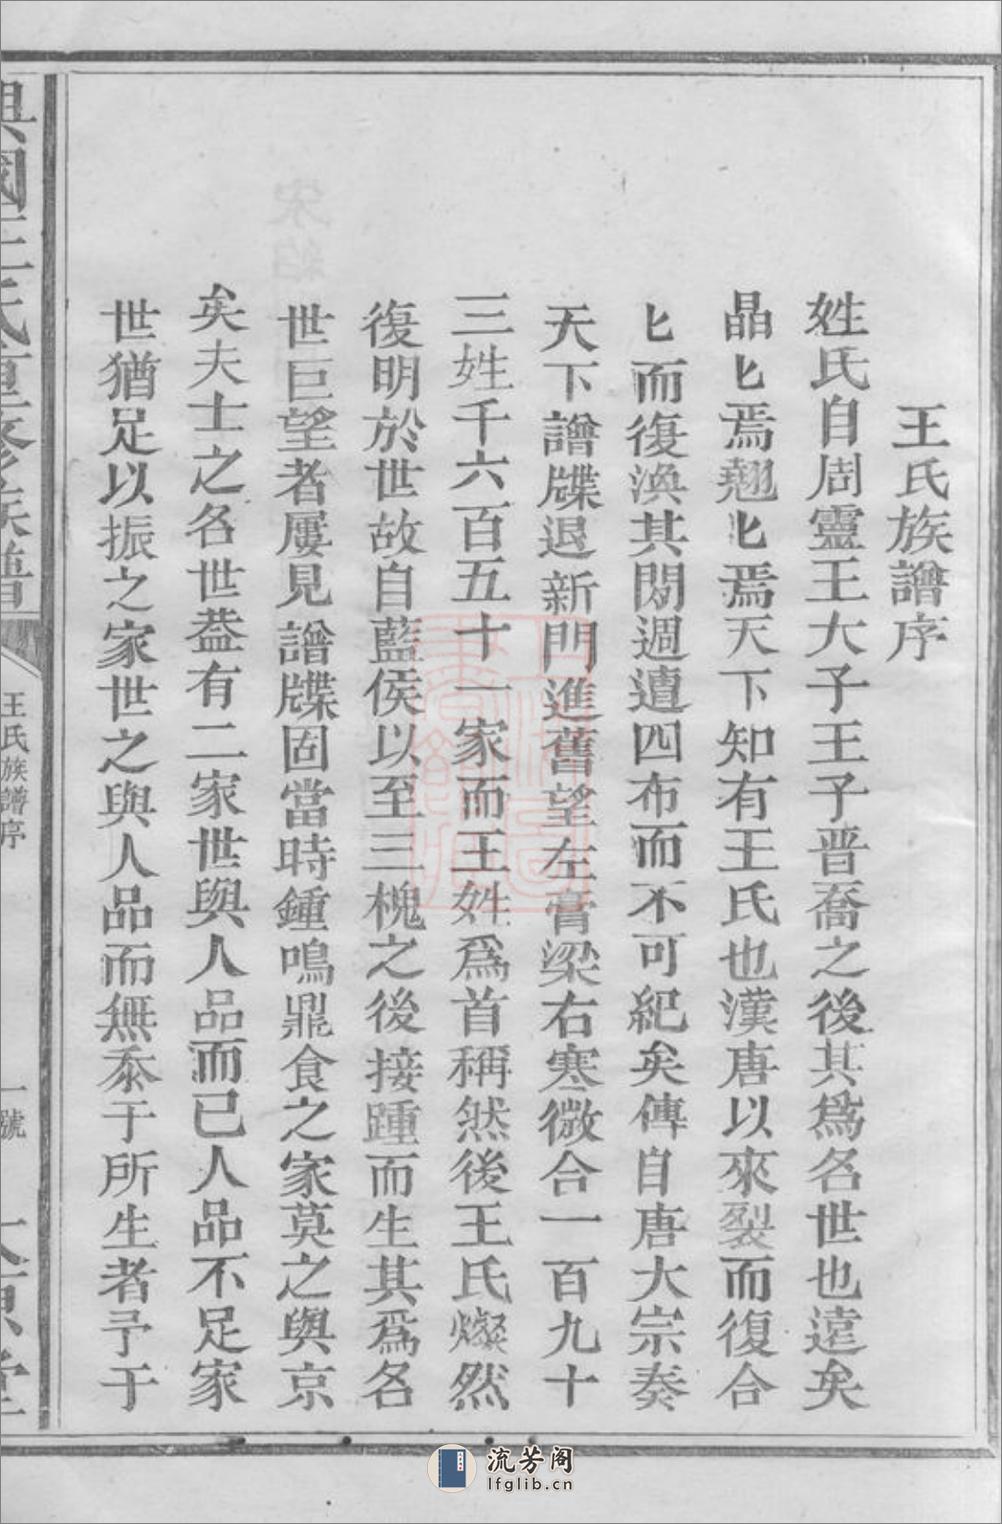 王氏族譜序
姓氏自周靈王大子王子晋喬之後其爲名世也遠矣
晶匕焉翹匕焉天下知有王氏也漢唐以來裂而復合
匕而復渙其閥週遭四布而不可紀矣傳自唐大宗奏
天下譜牒退新門進舊望左膏梁右寒微合一百九十
三姓千六百五十一家而王姓爲首稱然後王氏燦然
復明於世故自藍侯以至三槐之後接踵而生其爲名
世巨望者屢見譜牒固當時鍾鳴鼎食之家莫之與京
矣夫士之名世葢有二家世與人品而已人品不足家
世猶足以振之家世之與人品而無忝于所生者予于
興國王氏重修族譜
王氏族譜序
一號
太原堂
流芳阁
lfglib.cn